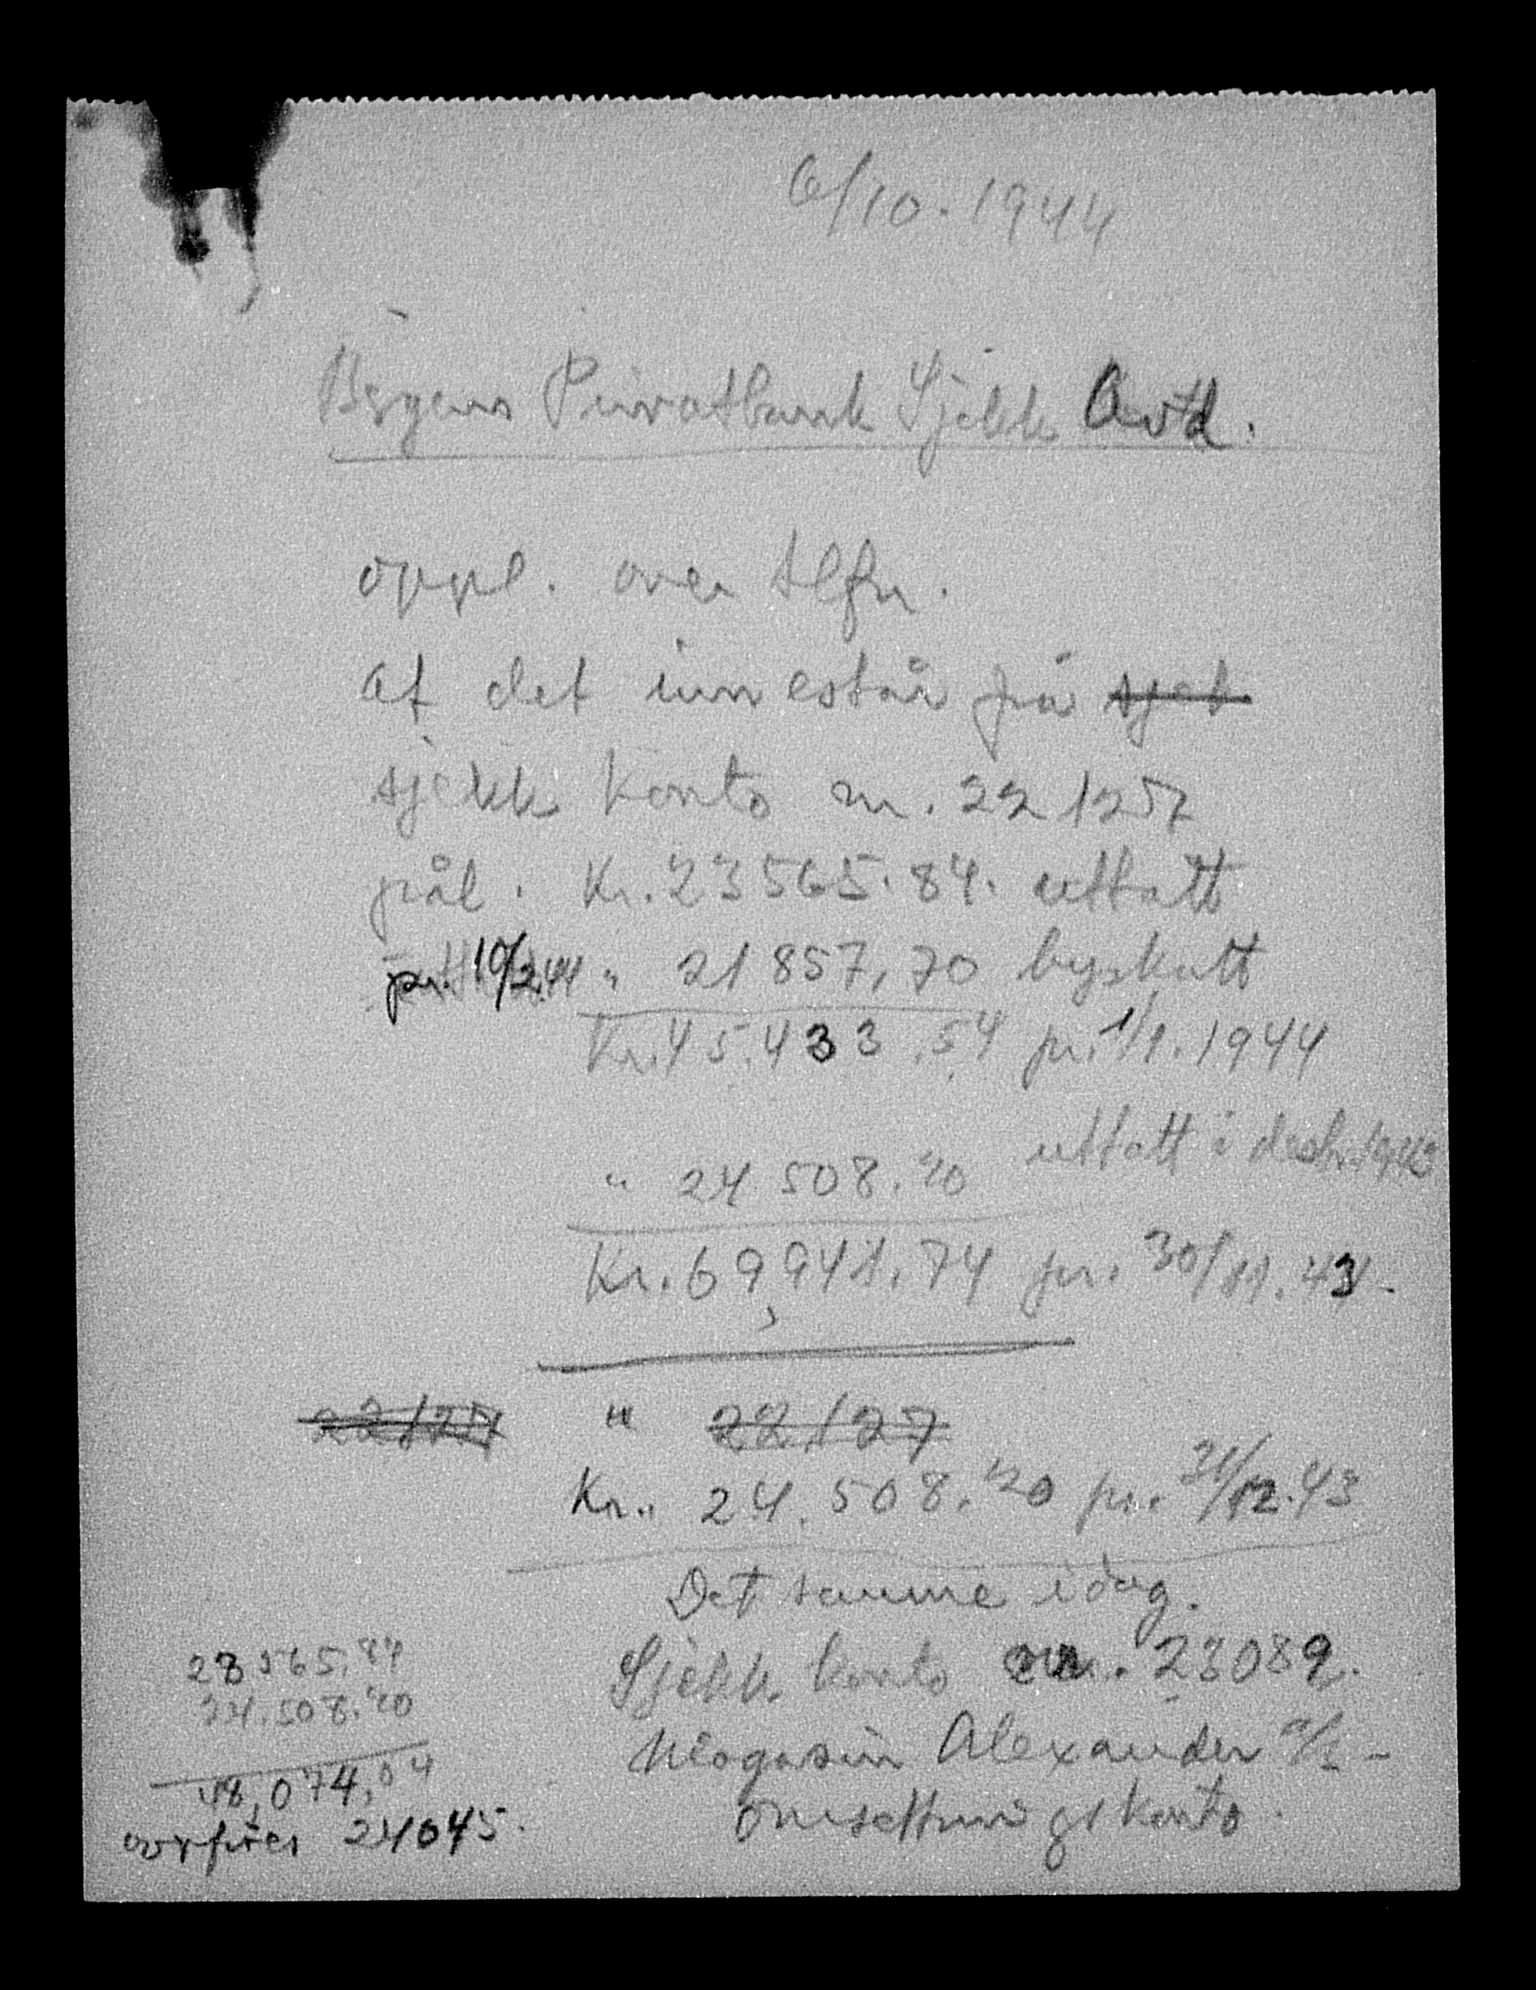 6/10. 1944
Bergens Privatbank Sjekk Avd.
oppl. over tlfn.
at det innestår på sjet
sjekk konto nr. 22127
pål. Kr. 23565.84. uttatt
pr. 10/2.44 " 21857,70 byskatt
Kr. 45.433.54 pr. 1/1. 1944
" 24 508.20 uttatt i desbr. 1943
Kr. 69,941.74 pr. 30/11. 43.
22127 " 22127
Kr. " 24.508.20 pr. 31/12.43
Det samme idag.
Sjekk. konto nr. 23089.
Magasin Alexander a/s -
omsettningskonto.
23565.84
24.508.20
48,074,04
ovrføres 24045.